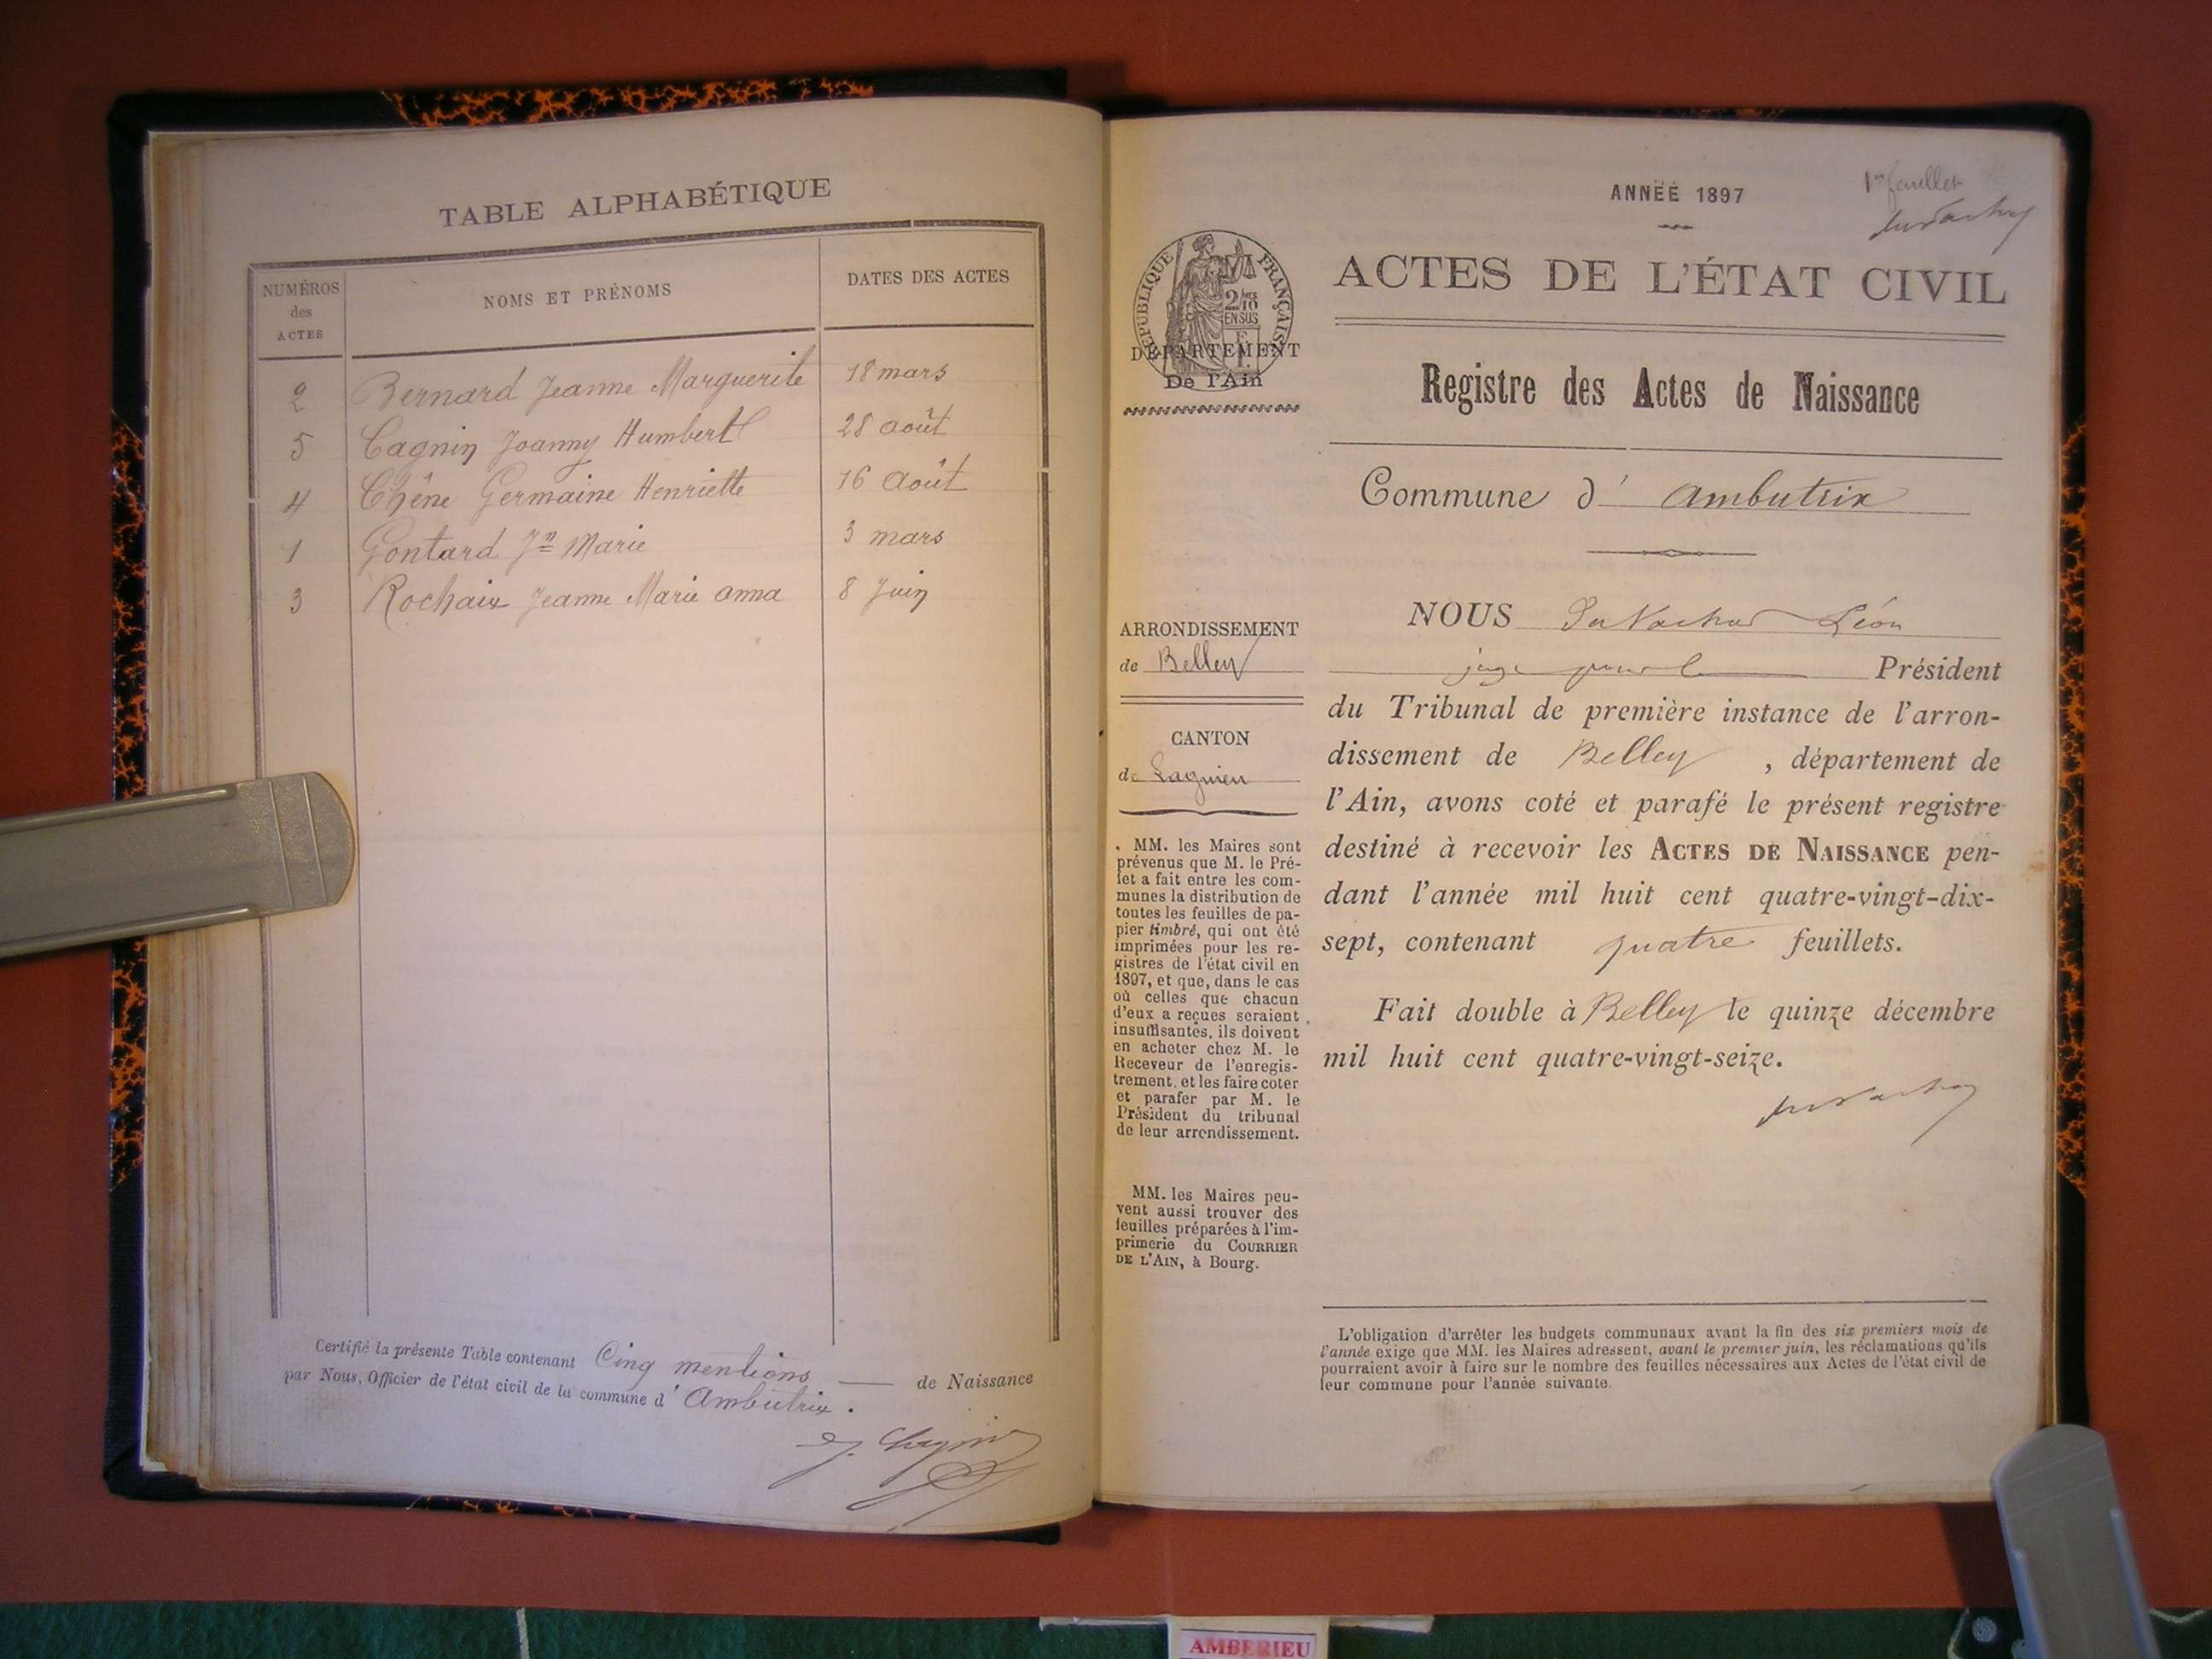 TABLE ALPHABÉTIQUE
NUMÉROS des ACTES
NOMS ET PRÉNOMS
DATES DES ACTES
2 Bernard Jeanne Marguerite 18 mars
5 Cagnin Joanny Humbert 28 août
4 Chêne Germaine Henriette 16 Août
1 Gontard Jne Marie 3 mars
3 Rochaix Jeanne Marie Anna 8 Juin
Certifié la présente Table contenant Cinq mentions — de Naissance
par Nous, Officier de l'état civil de la commune d' Ambutrix.
1er feuillet
ANNÉE 1897
RÉPUBLIQUE FRANÇAISE
2/10 EN SUS
DÉPARTEMENT
De l'Ain
ACTES DE L'ÉTAT CIVIL
Registre des Actes de Naissance
Commune d' Ambutrix
ARRONDISSEMENT
de Belley
CANTON
de Lagnieu
. MM. les Maires sont
prévenus que M. le Pré-
fet a fait entre les com-
munes la distribution de
toutes les feuilles de pa-
pier timbré, qui ont été
imprimées pour les re-
gistres de l'état civil en
1897, et que, dans le cas
où celles que chacun
d'eux a reçues seraient
insuffisantes, ils doivent
en acheter chez M. le
Receveur de l'enregis-
trement, et les faire coter
et parafer par M. le
Président du tribunal
de leur arrondissement.
MM. les Maires peu-
vent aussi trouver des
feuilles préparées à l'im-
primerie du COURRIER
DE L'AIN, à Bourg.
NOUS Léon
juge pour le Président
du Tribunal de première instance de l'arron-
dissement de Belley , département de
l'Ain, avons coté et parafé le présent registre
destiné à recevoir les ACTES DE NAISSANCE pen-
dant l'année mil huit cent quatre-vingt-dix-
sept, contenant quatre feuillets.
Fait double à Belley le quinze décembre
mil huit cent quatre-vingt-seize.
L'obligation d'arrêter les budgets communaux avant la fin des six premiers mois de
l'année exige que MM. les Maires adressent, avant le premier juin, les réclamations qu'ils
pourraient avoir à faire sur le nombre des feuilles nécessaires aux Actes de l'état civil de
leur commune pour l'année suivante.
AMBERIEU